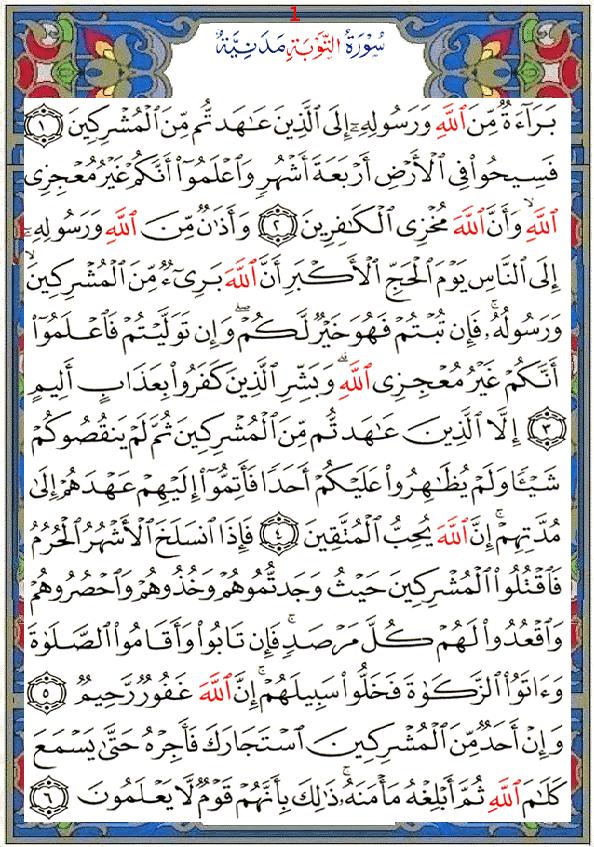 1
سُورَةُ التَّوْبَةِ مَدَنِيَّةٌ
بَرَآءَةٌ مِّنَ ٱللَّهِ وَرَسُولِهِۦٓ إِلَى ٱلَّذِينَ عَٰهَدتُّم مِّنَ ٱلْمُشْرِكِينَ ١
فَسِيحُوا۟ فِى ٱلْأَرْضِ أَرْبَعَةَ أَشْهُرٍ وَٱعْلَمُوٓا۟ أَنَّكُمْ غَيْرُ مُعْجِزِى
ٱللَّهِ ۙ وَأَنَّ ٱللَّهَ مُخْزِى ٱلْكَٰفِرِينَ ٢ وَأَذَٰنٌ مِّنَ ٱللَّهِ وَرَسُولِهِۦٓ
إِلَى ٱلنَّاسِ يَوْمَ ٱلْحَجِّ ٱلْأَكْبَرِ أَنَّ ٱللَّهَ بَرِىٓءٌ مِّنَ ٱلْمُشْرِكِينَ ۙ
وَرَسُولُهُۥ ۚ فَإِن تُبْتُمْ فَهُوَ خَيْرٌ لَّكُمْ ۖ وَإِن تَوَلَّيْتُمْ فَٱعْلَمُوٓا۟
أَنَّكُمْ غَيْرُ مُعْجِزِى ٱللَّهِ ۗ وَبَشِّرِ ٱلَّذِينَ كَفَرُوا۟ بِعَذَابٍ أَلِيمٍ
٣ إِلَّا ٱلَّذِينَ عَٰهَدتُّم مِّنَ ٱلْمُشْرِكِينَ ثُمَّ لَمْ يَنقُصُوكُمْ
شَيْـًٔا وَلَمْ يُظَٰهِرُوا۟ عَلَيْكُمْ أَحَدًا فَأَتِمُّوٓا۟ إِلَيْهِمْ عَهْدَهُمْ إِلَىٰ
مُدَّتِهِمْ ۚ إِنَّ ٱللَّهَ يُحِبُّ ٱلْمُتَّقِينَ ٤ فَإِذَا ٱنسَلَخَ ٱلْأَشْهُرُ ٱلْحُرُمُ
فَٱقْتُلُوا۟ ٱلْمُشْرِكِينَ حَيْثُ وَجَدتُّمُوهُمْ وَخُذُوهُمْ وَٱحْصُرُوهُمْ
وَٱقْعُدُوا۟ لَهُمْ كُلَّ مَرْصَدٍ ۚ فَإِن تَابُوا۟ وَأَقَامُوا۟ ٱلصَّلَوٰةَ
وَءَاتَوُا۟ ٱلزَّكَوٰةَ فَخَلُّوا۟ سَبِيلَهُمْ ۚ إِنَّ ٱللَّهَ غَفُورٌ رَّحِيمٌ ٥
وَإِنْ أَحَدٌ مِّنَ ٱلْمُشْرِكِينَ ٱسْتَجَارَكَ فَأَجِرْهُ حَتَّىٰ يَسْمَعَ
كَلَٰمَ ٱللَّهِ ثُمَّ أَبْلِغْهُ مَأْمَنَهُۥ ۚ ذَٰلِكَ بِأَنَّهُمْ قَوْمٌ لَّا يَعْلَمُونَ ٦